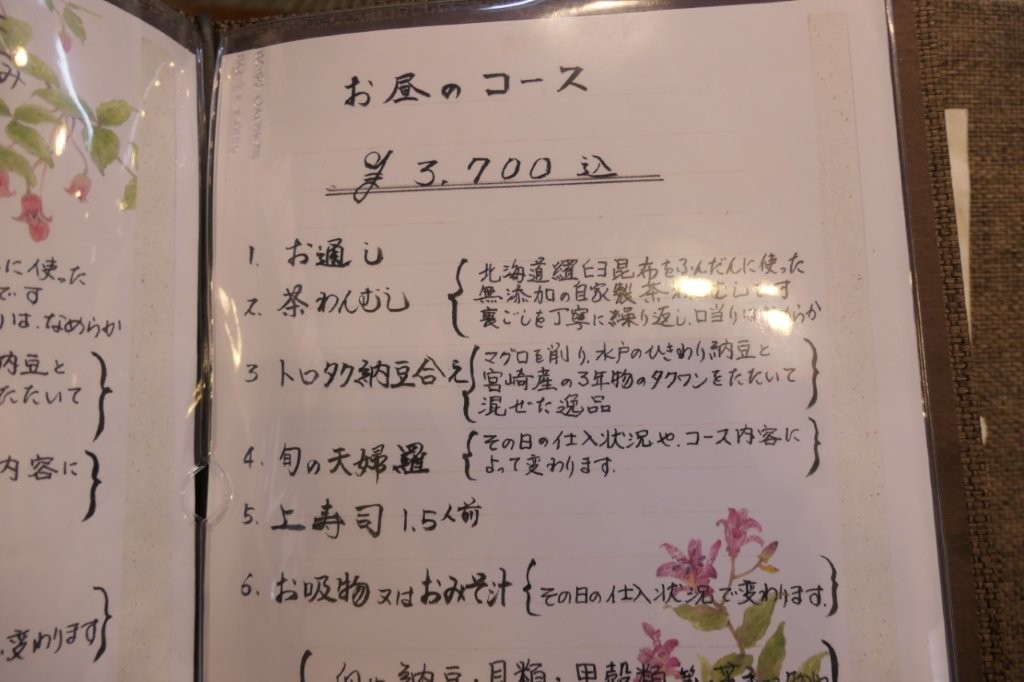 み
に使った
です
りは、なめらか
納豆と
たたいて
内容に
変わります
お昼のコース
¥3,700 込
1. お通し
2. 茶わんむし
北海道羅臼昆布をふんだんに使った
無添加の自家製茶わんむしです
裏ごしを丁寧に繰り返し、口当りは なめらか
3 トロタク納豆合え
マグロを削り、水戸のひきわり納豆と
宮崎産の3年物のタクワンをたたいて
混ぜた逸品
4. 旬の天婦羅
その日の仕入状況や、コース内容に
よって変わります.
5. 上寿司 1.5人前
6. お吸物 又は おみそ汁
その日の仕入状況で変わります.
納豆・貝類・甲殻類